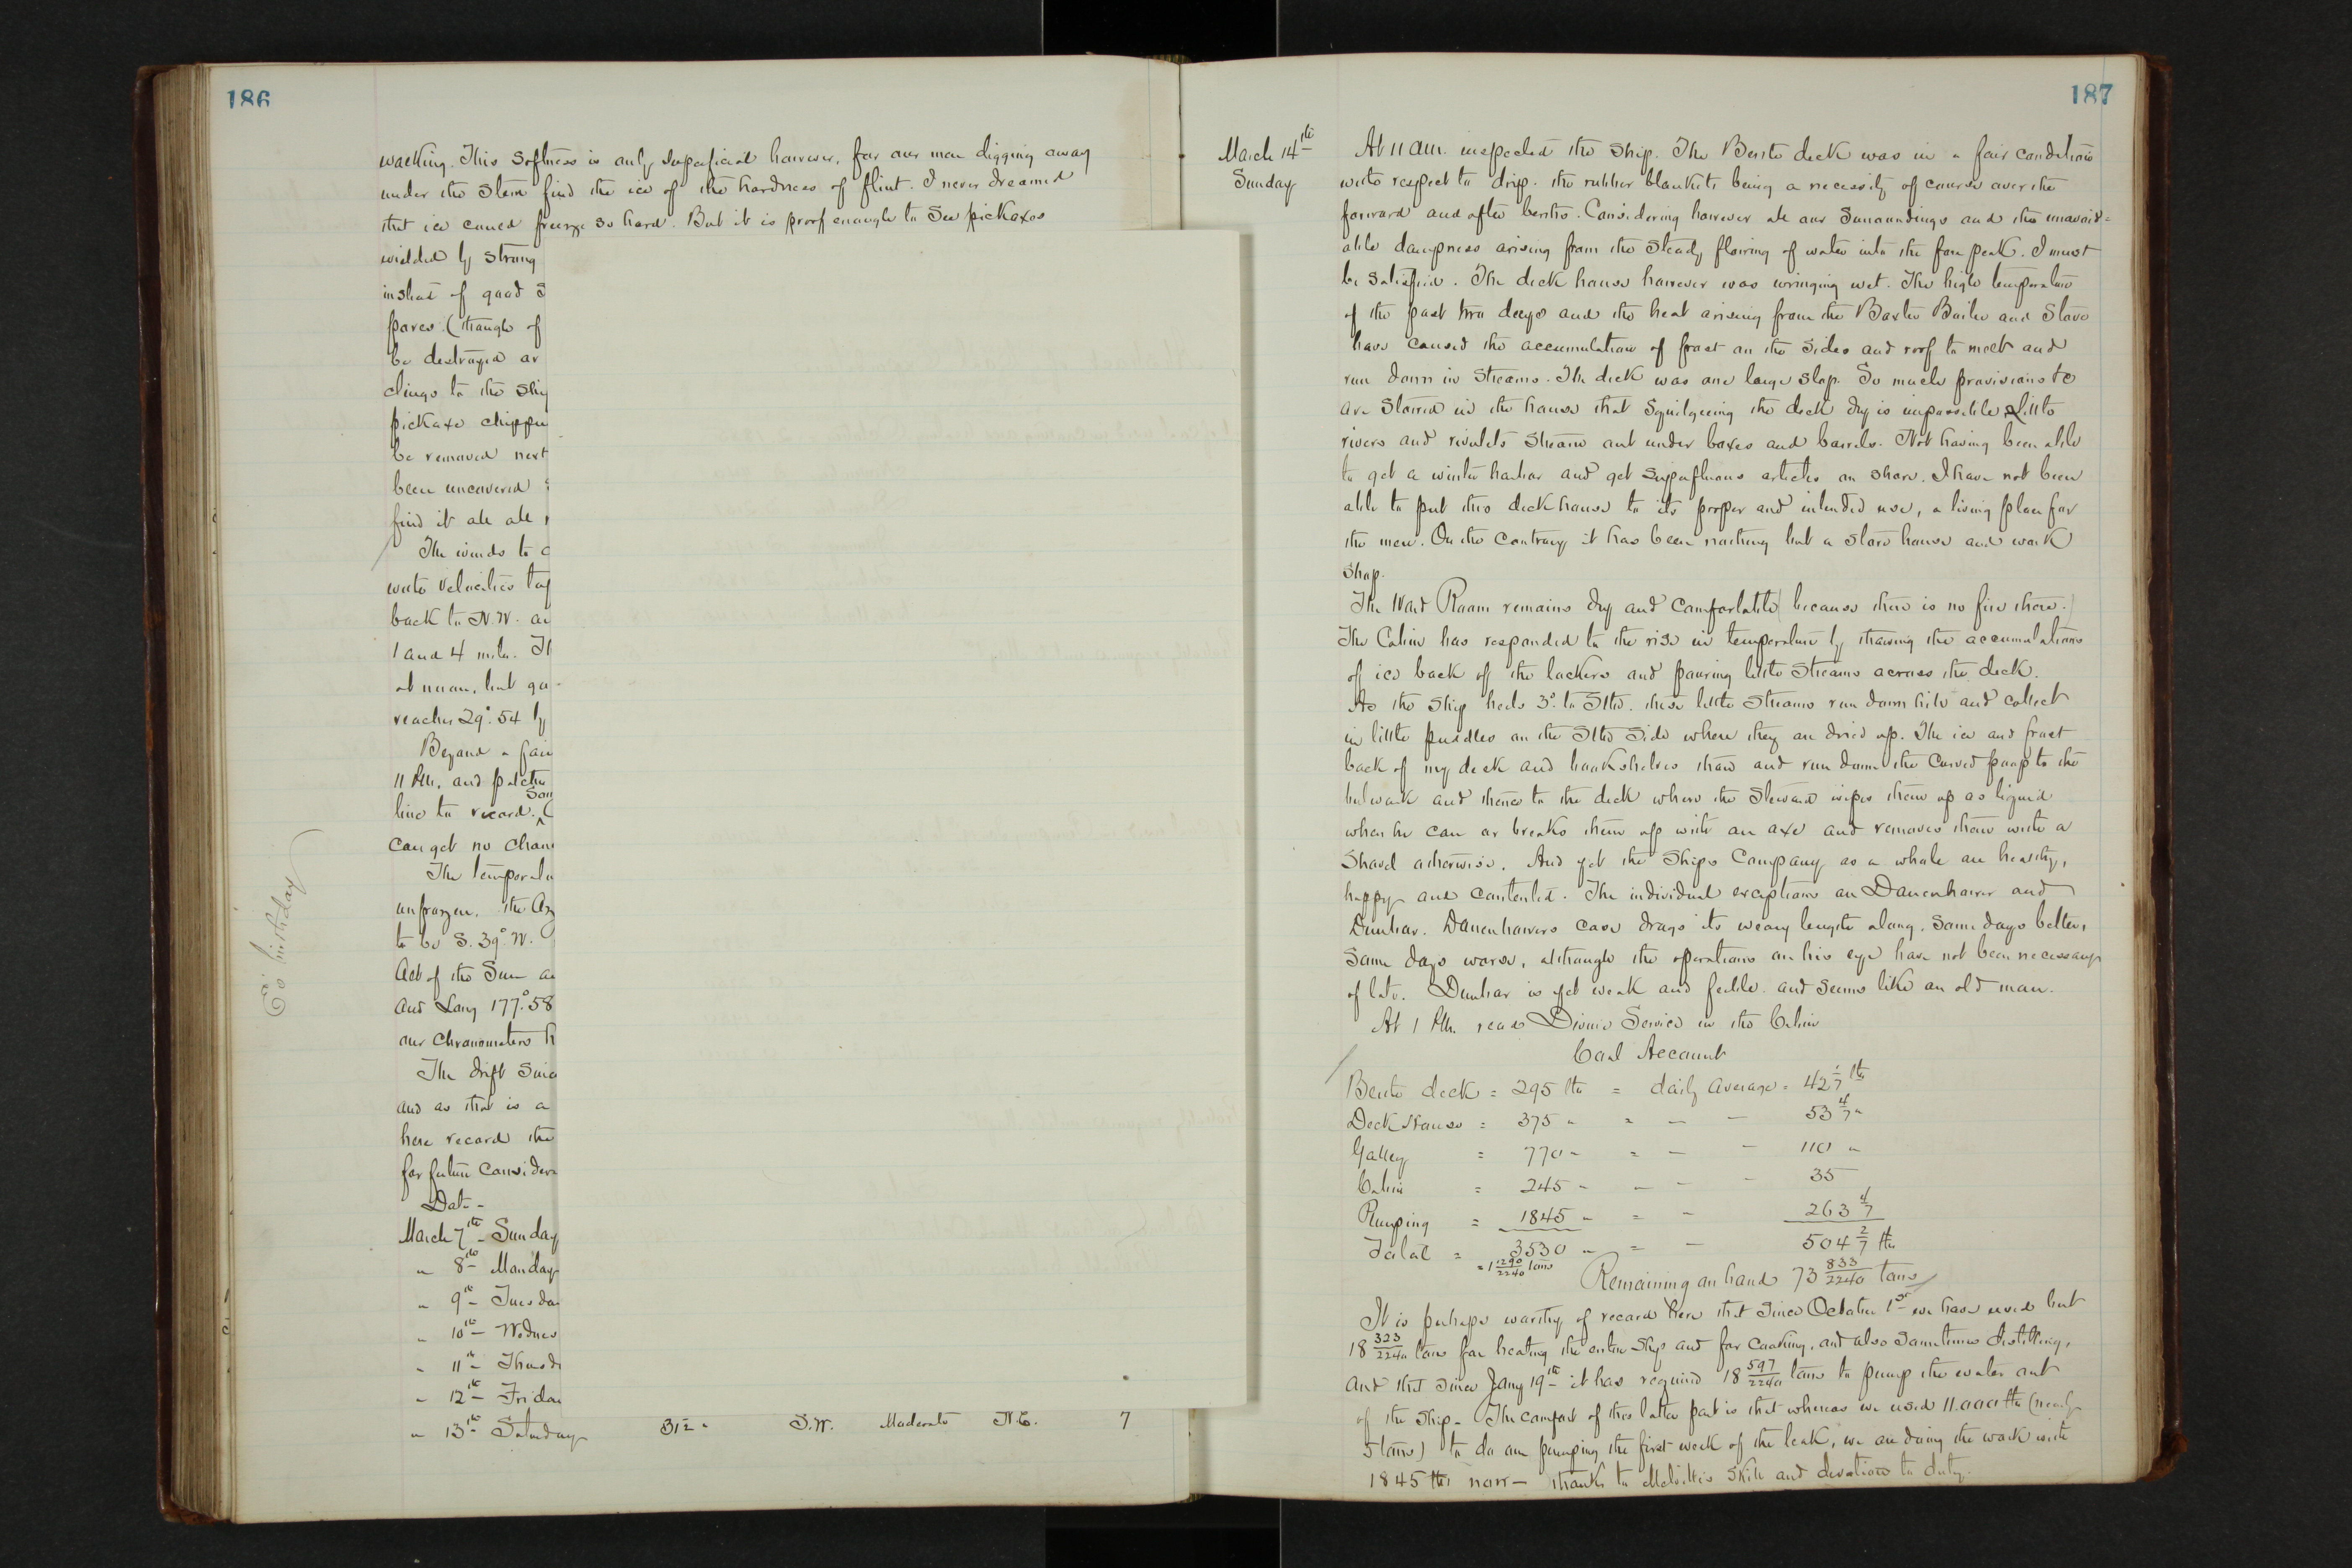 186
walking. This softness is only superficial however, for our men digging away
under the stern find the ice of the hardness of flint. I never dreamed
that ice could freeze so hard. But it is proof enough to see pickaxes
wielded by strong
instead of good
forces (though of
be destroyed or
clings to the ship
pickaxe chipp
be removed next
been uncovered
find it all
The winds to
with velocities
back to N.W. a
1 and 4 miles.
at noon, but
reaches 29°.54 by
Beyond a fai
11 P.M. and patche
line to record. (
can get no chan
The temperatu
unfrozen. The
to be S. 39° W.
Alt of the Sun a
and Long 177°.58
our chronometers
The drift since
and as that is a
here record the
for future consider
Date
March 7th Sunday
" 8th Monday
" 9th Tuesda
" 10th Wednes
" 11th Thursd
" 12th Friday
" 13th Saturday 31 S.W. Moderate N.E. 7
E's birthday
187
March 14th
Sunday
At 11 a.m. inspected the ship. The Berth deck was in a fair condition
with respect to drip. the rubber blankets being a necessity of course over the
forward and after berths. Considering however all our surroundings and the unavoid=
able dampness arising from the steady flowing of water into the fore peak. I must
be satisfied. The deck house however was wringing wet. The high temperature
of the past two days and the heat arising from the Baxter Boiler and Stove
have caused the accumulation of frost on the sides and roof to melt and
run down in streams. The deck was one large slop. So much provisions &c
are stored in the house that squilgeeing the deck dry is impossible, Little
rivers and rivulets stream out under boxes and barrels. Not having been able
to get a winter harbor and get superfluous articles on shore. I have not been
able to put this deck house to its proper and intended use, a living place for
the men. On the contrary it has been nothing but a store house and work
shop.
The Ward Room remains dry and comfortable (because there is no fire there.)
The Cabin has responded to the rise in temperature by thawing the accumulations
of ice back of the lockers and pouring little streams across the deck.
As the ship heels 3° to Stbd. these little streams run down hill and collect
in little puddles on the Stbd side where they are dried up. The ice and frost
back of my desk and bookshelves thaw and run down the curved poop to the
bulwark and thence to the deck where the steward wipes them up as liquid
when he can or breaks them up with an axe and removes them with a
shovel otherwise. And yet the ships company as a whole are healthy,
happy and contented. The individual exceptions are Danenhower and
Dunbar. Danenhowers case drags its weary length along. Some days better,
some days worse, although the operations on his eye have not been necessary
of late. Dunbar is yet weak and feeble and seems like an old man.
At 1 P.M. read Divine Service in the Cabin
Coal Account
Berth deck = 295 lbs = daily average = 42 1/7 lbs
Deck House = 375 " = — — 53 4/7 "
Galley = 770 " = — — 110 "
Cabin = 245 " — — — 35
Pumping = 1845 " = — 263 4/7
Total = 3530 " = — 504 2/7 lbs
= 1 1290/2240 tons
Remaining on hand 73 833/2240 tons
It is perhaps worthy of record here that since October 1st we have used but
18 323/2240 tons for heating the entire ship and for cooking, and also sometimes distilling,
and that since Jany 19th it has required 18 597/2240 tons to pump the water out
of the ship. The comfort of this latter part is that whereas we used 11.000 lbs (nearly
5 tons) to do our pumping the first week of the leak, we are doing the work with
1845 lbs now — thanks to Melville's skill and devotion to duty.